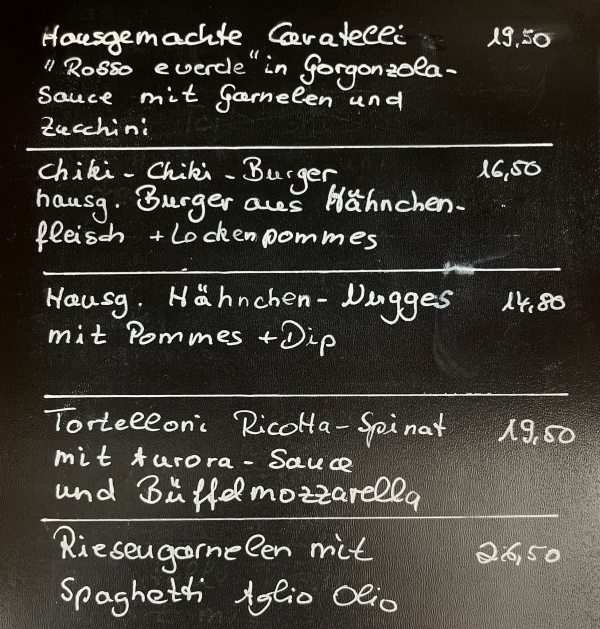 Hausgemachte Cavatelli 19,50
"Rosso e verde" in Gorgonzola-
Sauce mit Garnelen und
Zucchini
Chiki-Chiki-Burger 16,50
hausg. Burger aus Hähnchen-
fleisch + Lockenpommes
Hausg. Hähnchen-Nugges 14,80
mit Pommes + Dip
Tortelloni Ricotta-Spinat 19,50
mit Aurora-Sauce
und Büffelmozzarella
Riesengarnelen mit 26,50
Spaghetti Aglio Olio